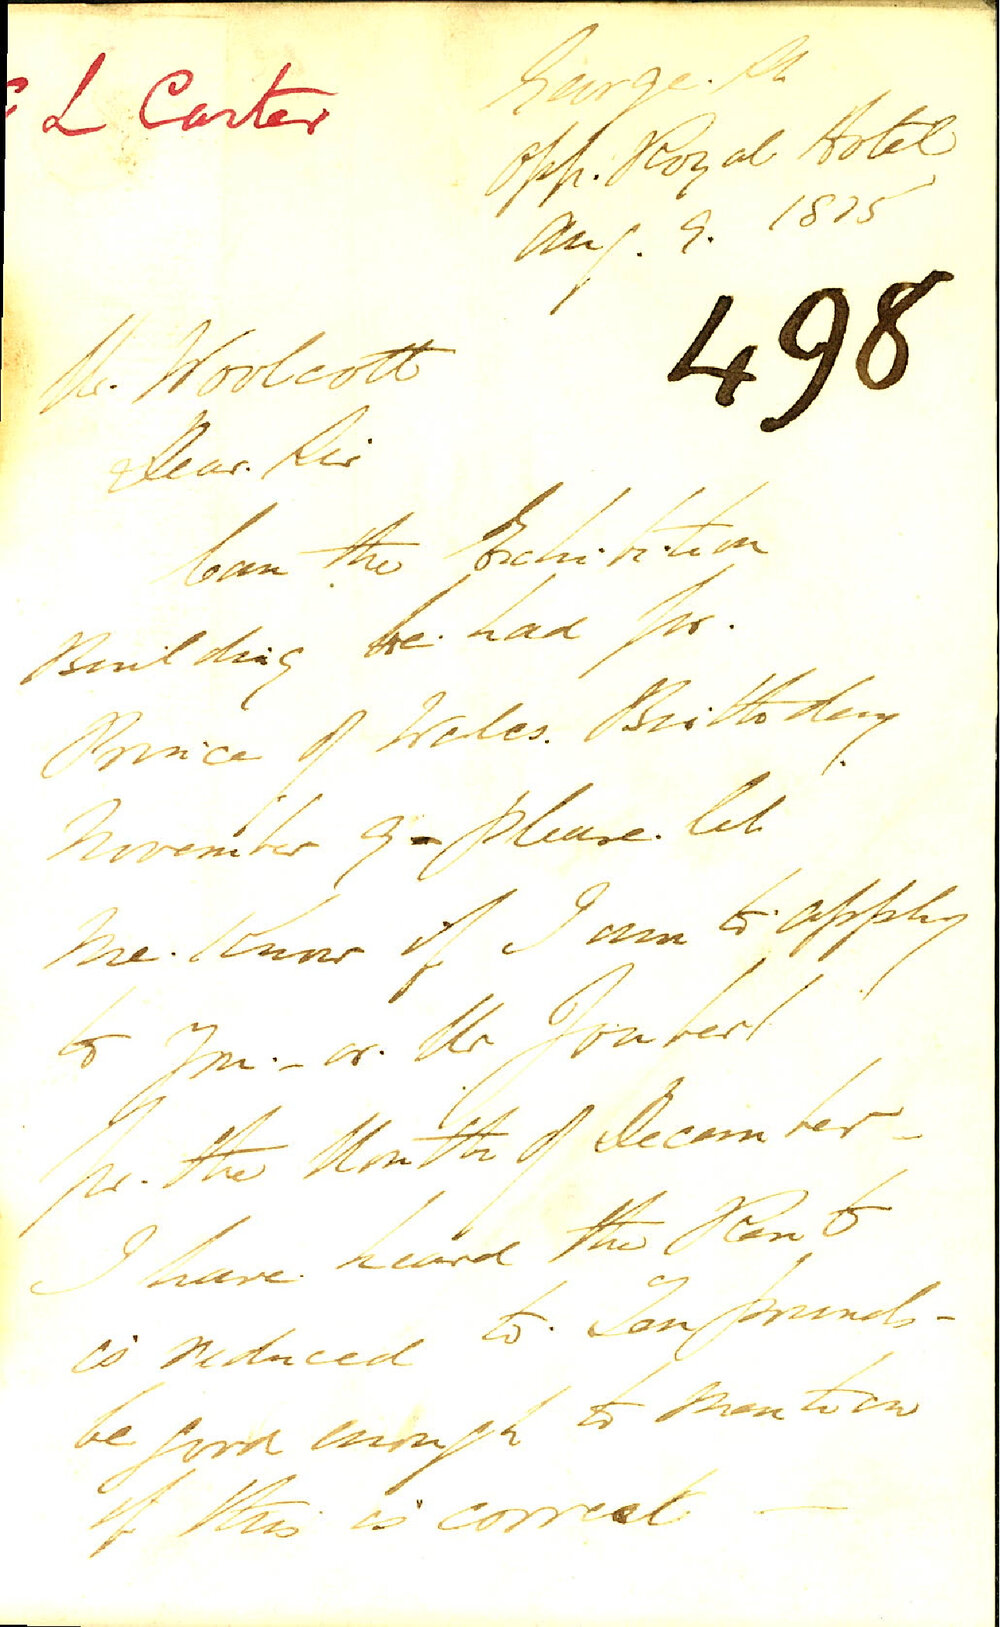 L Carter
George. St
opp. Royal Hotel
Aug. 9. 1875
498
Mr. Woolcott
Dear. Sir
Can the Exhibition
Building be had for.
Prince of Wales. Birthday
November 9 - please. let
me. know if I am to apply
to you. - or. Mr Joubert
for. the Month of December -
I have. heard the Rent
is reduced to. Ten pounds -
be good enough to mention
if this is correct —